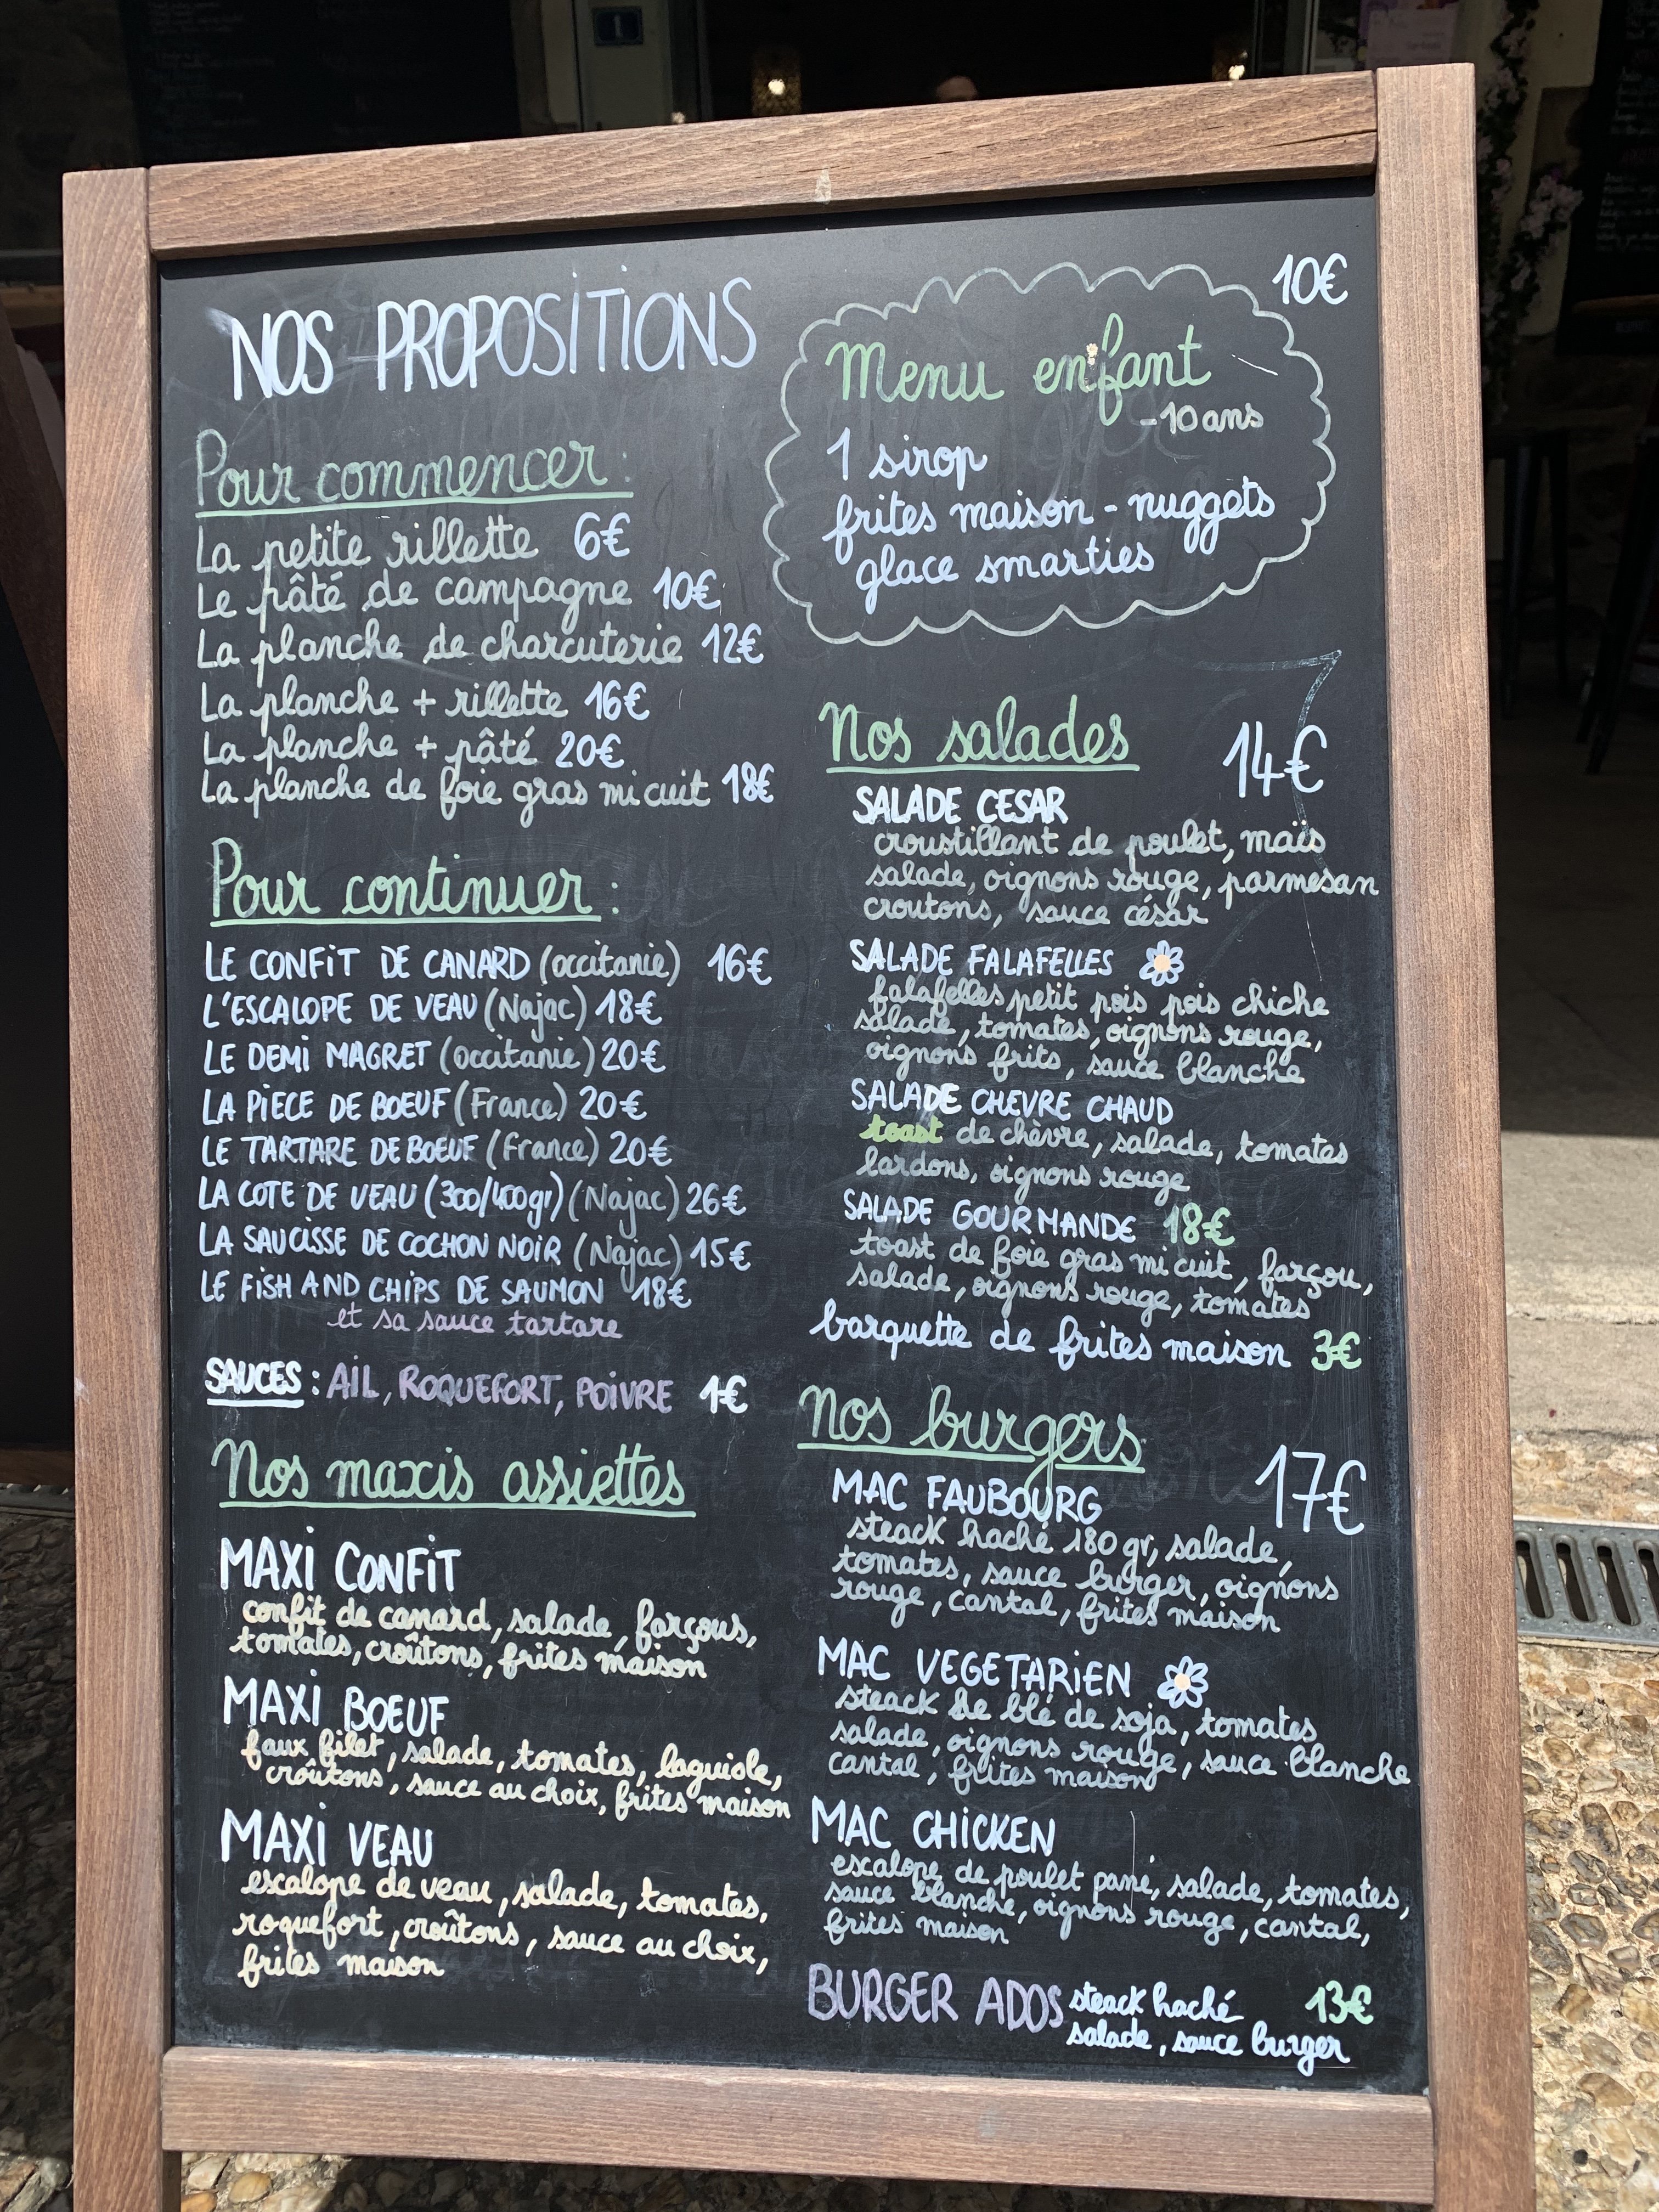 NOS PROPOSITIONS
Pour commencer :
La petite rillette 6€
Le pâté de campagne 10€
La planche de charcuterie 12€
La planche + rillette 16€
La planche + pâté 20€
La planche de foie gras mi cuit 18€
Pour continuer :
LE CONFIT DE CANARD (occitanie) 16€
L'ESCALOPE DE VEAU (Najac) 18€
LE DEMI MAGRET (occitanie) 20€
LA PIECE DE BOEUF (France) 20€
LE TARTARE DE BOEUF (France) 20€
LA COTE DE VEAU (300/400gr) (Najac) 26€
LA SAUCISSE DE COCHON NOIR (Najac) 15€
LE FISH AND CHIPS DE SAUMON 18€
et sa sauce tartare
SAUCES : AIL, ROQUEFORT, POIVRE 1€
Nos maxis assiettes
MAXI CONFIT
confit de canard, salade, farçous,
tomates, croûtons, frites maison
MAXI BOEUF
faux filet, salade, tomates, laguiole,
croûtons, sauce au choix, frites maison
MAXI VEAU
escalope de veau, salade, tomates,
roquefort, croûtons, sauce au choix,
frites maison
10€
Menu enfant
-10 ans
1 sirop
frites maison - nuggets
glace smarties
Nos salades 14€
SALADE CESAR
croustillant de poulet, maïs
salade, oignons rouge, parmesan
croutons, sauce césar
SALADE FALAFELLES
falafelles petit pois pois chiche
salade, tomates, oignons rouge,
oignons frits, sauce blanche
SALADE CHEVRE CHAUD
toast de chèvre, salade, tomates
lardons, oignons rouge
SALADE GOURMANDE 18€
toast de foie gras mi cuit, farçou,
salade, oignons rouge, tomates
barquette de frites maison 3€
Nos burgers 17€
MAC FAUBOURG
steack haché 180 gr, salade,
tomates, sauce burger, oignons
rouge, cantal, frites maison
MAC VEGETARIEN
steack de blé de soja, tomates
salade, oignons rouge, sauce blanche
cantal, frites maison
MAC CHICKEN
escalope de poulet pané, salade, tomates,
sauce blanche, oignons rouge, cantal,
frites maison
BURGER ADOS steack haché 13€
salade, sauce burger